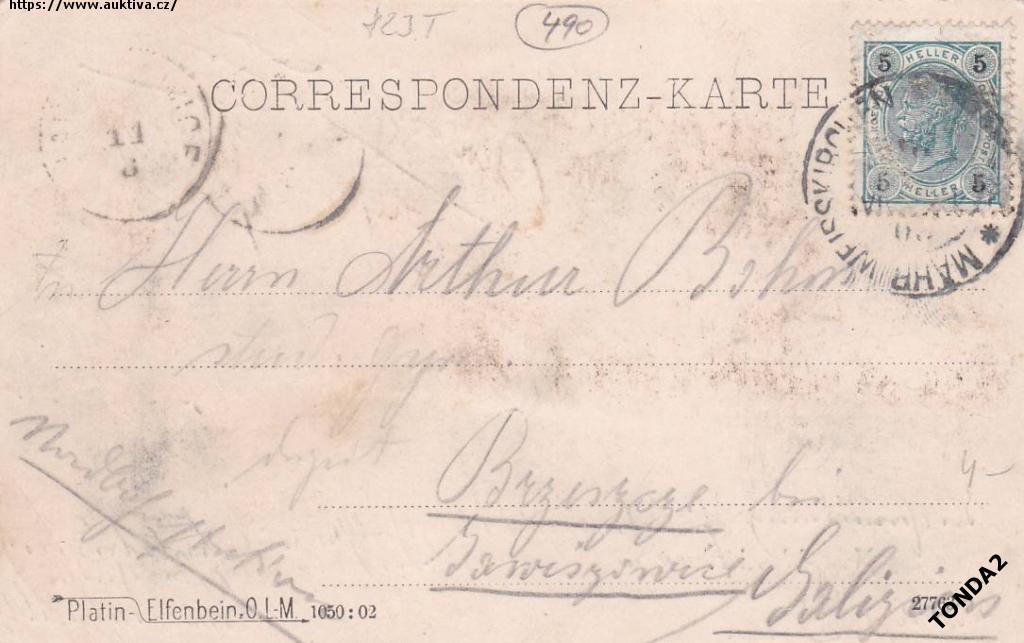 https://www.auktiva.cz/
123T
490
CORRESPONDENZ-KARTE
5 HELLER 5
5 HELLER 5
MÄHR. WEISSKIRCHEN *
11
8
Herrn Arthur Böhm
stud. gym.
Nordbahnstation
Brzeszcze bei
Jawiszowice
Galizien
4-
Platin-Elfenbein, O. L-M. 1050:02
2776
TONDA2